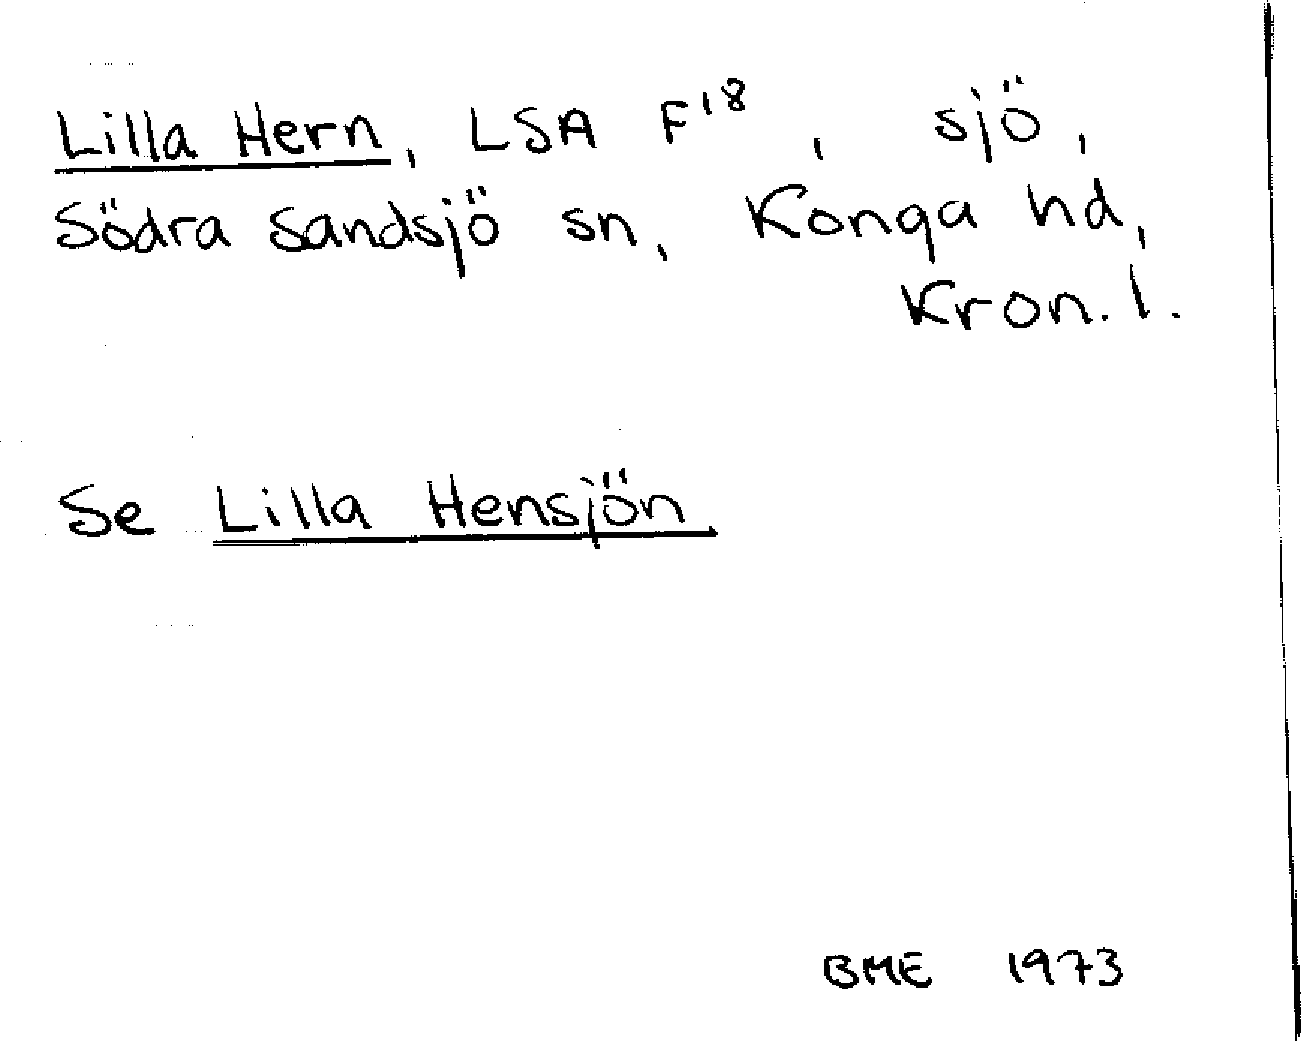 Lilla Hern, LSA F¹⁸, sjö,
Södra Sandsjö sn, Konga hd,
Kron. l.
Se Lilla Hensjön
BME 1973